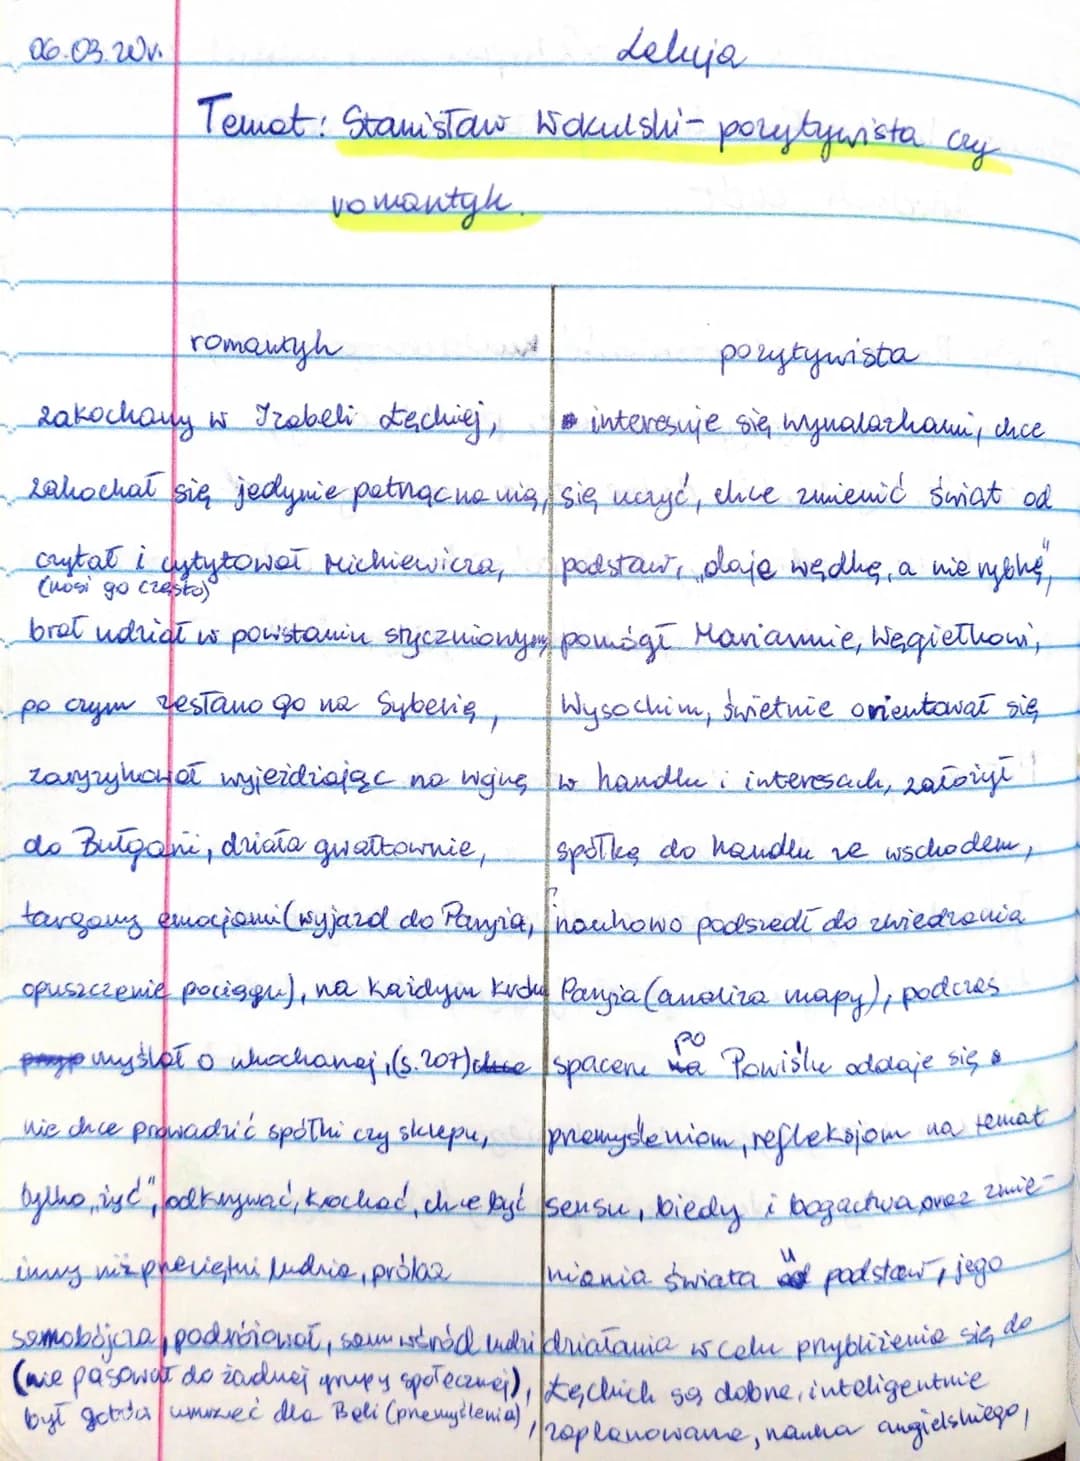 06.03.20r.
Lekcja
Temat: Stanisław Wokulski - pozytywista czy
romantyk.
romantyk
zakochany w Izabeli Łęckiej,
zakochał się jedynie patrząc na nią,
czytał i cytytował Mickiewicza,
(nosi go często)
brał udział w powstaniu styczniowym,
po czym zesłano go na Syberię,
zaryzykował wyjeżdżając na wojnę
do Bułgarii, działa gwałtownie,
targany emocjami (wyjazd do Paryża,
opuszczenie pociągu), na każdym kroku
myślał o ukochanej, (s. 207)
nie chce prowadzić spółki czy sklepu,
tylko „żyć", odkrywać, kochać, chce być
inny niż przeciętni ludzie, próba
samobójcza, podróżował, sam wśród ludzi
(nie pasował do żadnej grupy społecznej),
był gotów umrzeć dla Beli (przemyślenia),
pozytywista
interesuje się wynalazkami, chce
się uczyć, chce zmienić świat od
podstaw, „daje wędkę, a nie rybkę",
pomógł Mariannie, Węgiełkowi,
Wysockim, świetnie orientował się
w handlu i interesach, założył
spółkę do handlu ze wschodem,
naukowo podszedł do zwiedzania
Paryża (analiza mapy), podczas
spaceru po Powiślu oddaje się
przemyśleniom, refleksjom na temat
sensu, biedy i bogactwa oraz zmie-
niania świata u podstaw, jego
działania w celu przybliżenia się do
Łęckich są dobne, inteligentnie
zaplanowane, nauka angielskiego,